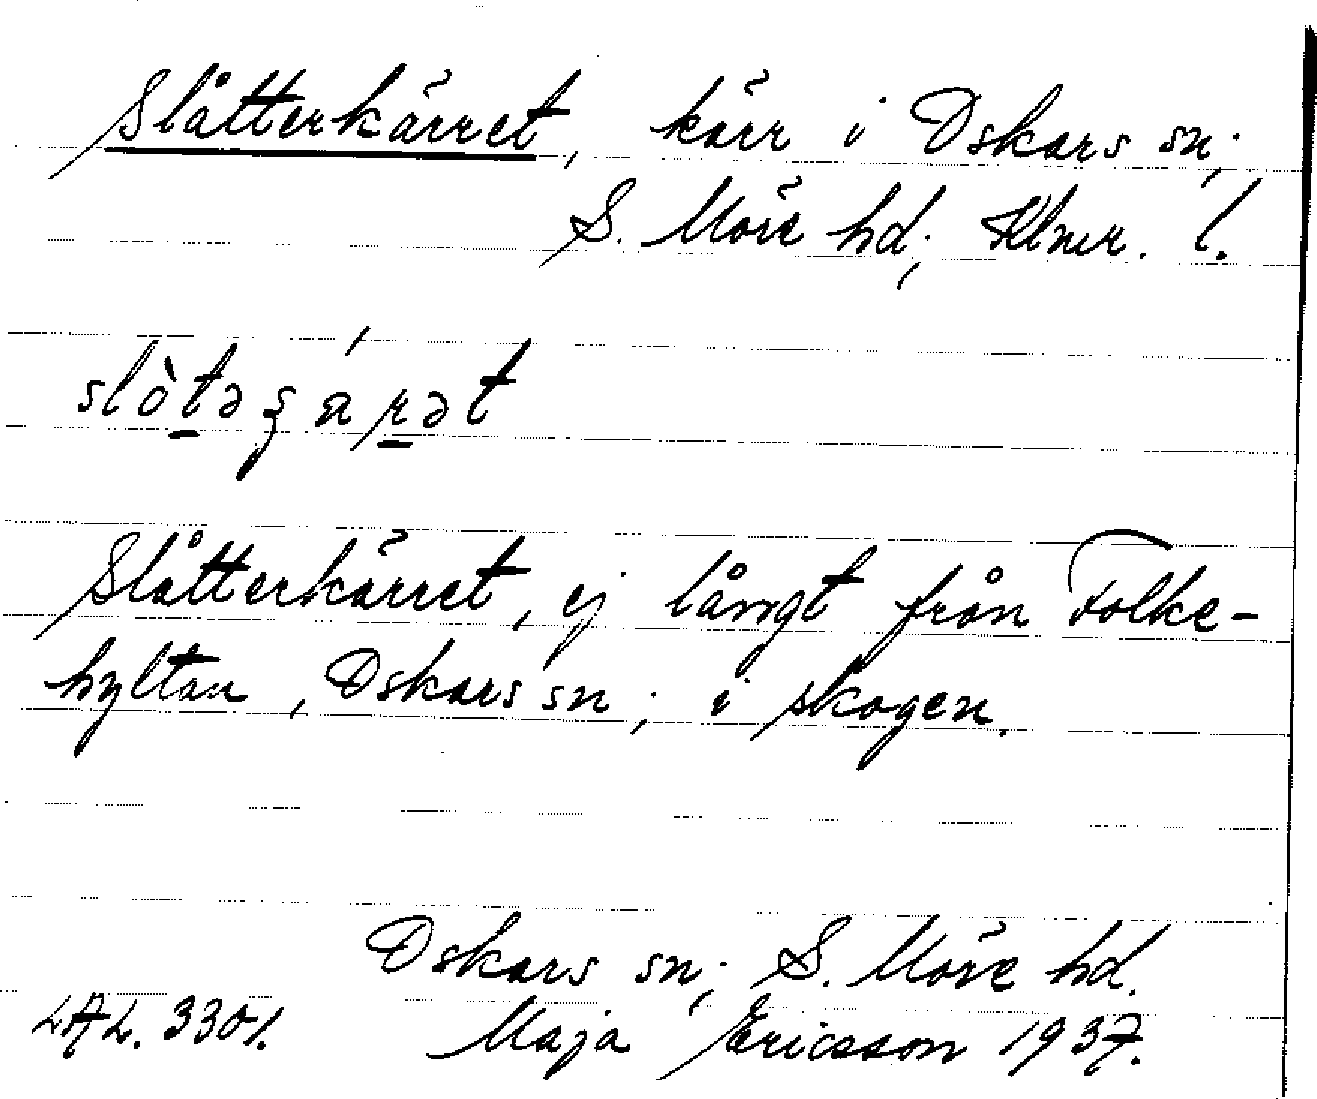 Slåtterkärret, kärr i Oskars sn;
S. Möre hd; Klmr. l.
slòtəʂárət
Slåtterkärret, ej långt från Folke-
hyltan, Oskars sn; i skogen.
Oskars sn; S. Möre hd.
LAL. 3301. Maja Ericsson 1937.